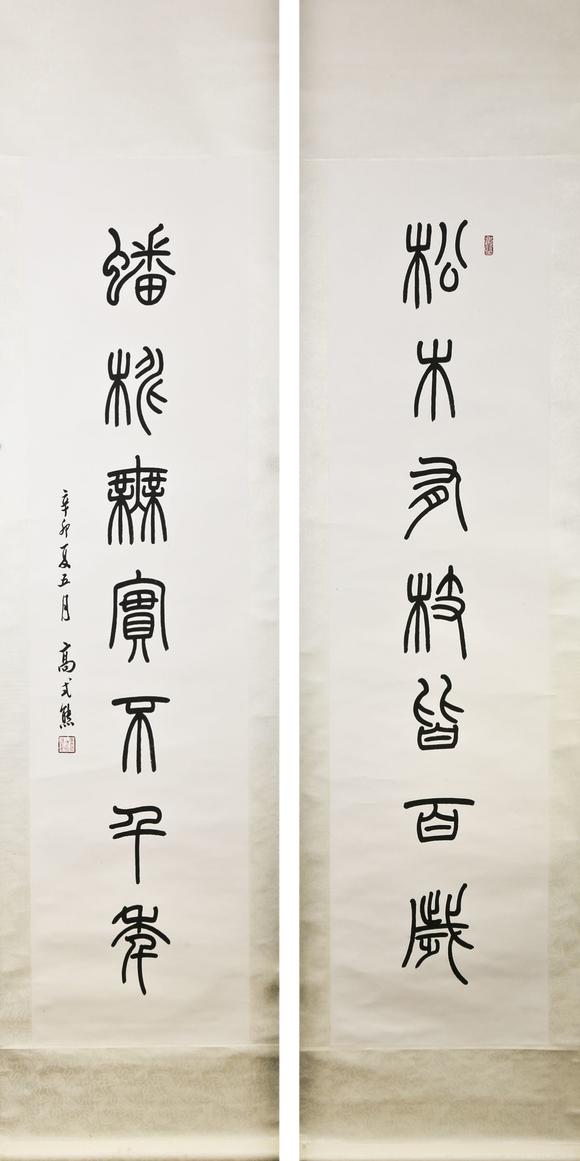 松木有枝皆百歲
蟠桃無實不千年
辛卯夏五月 高式熊